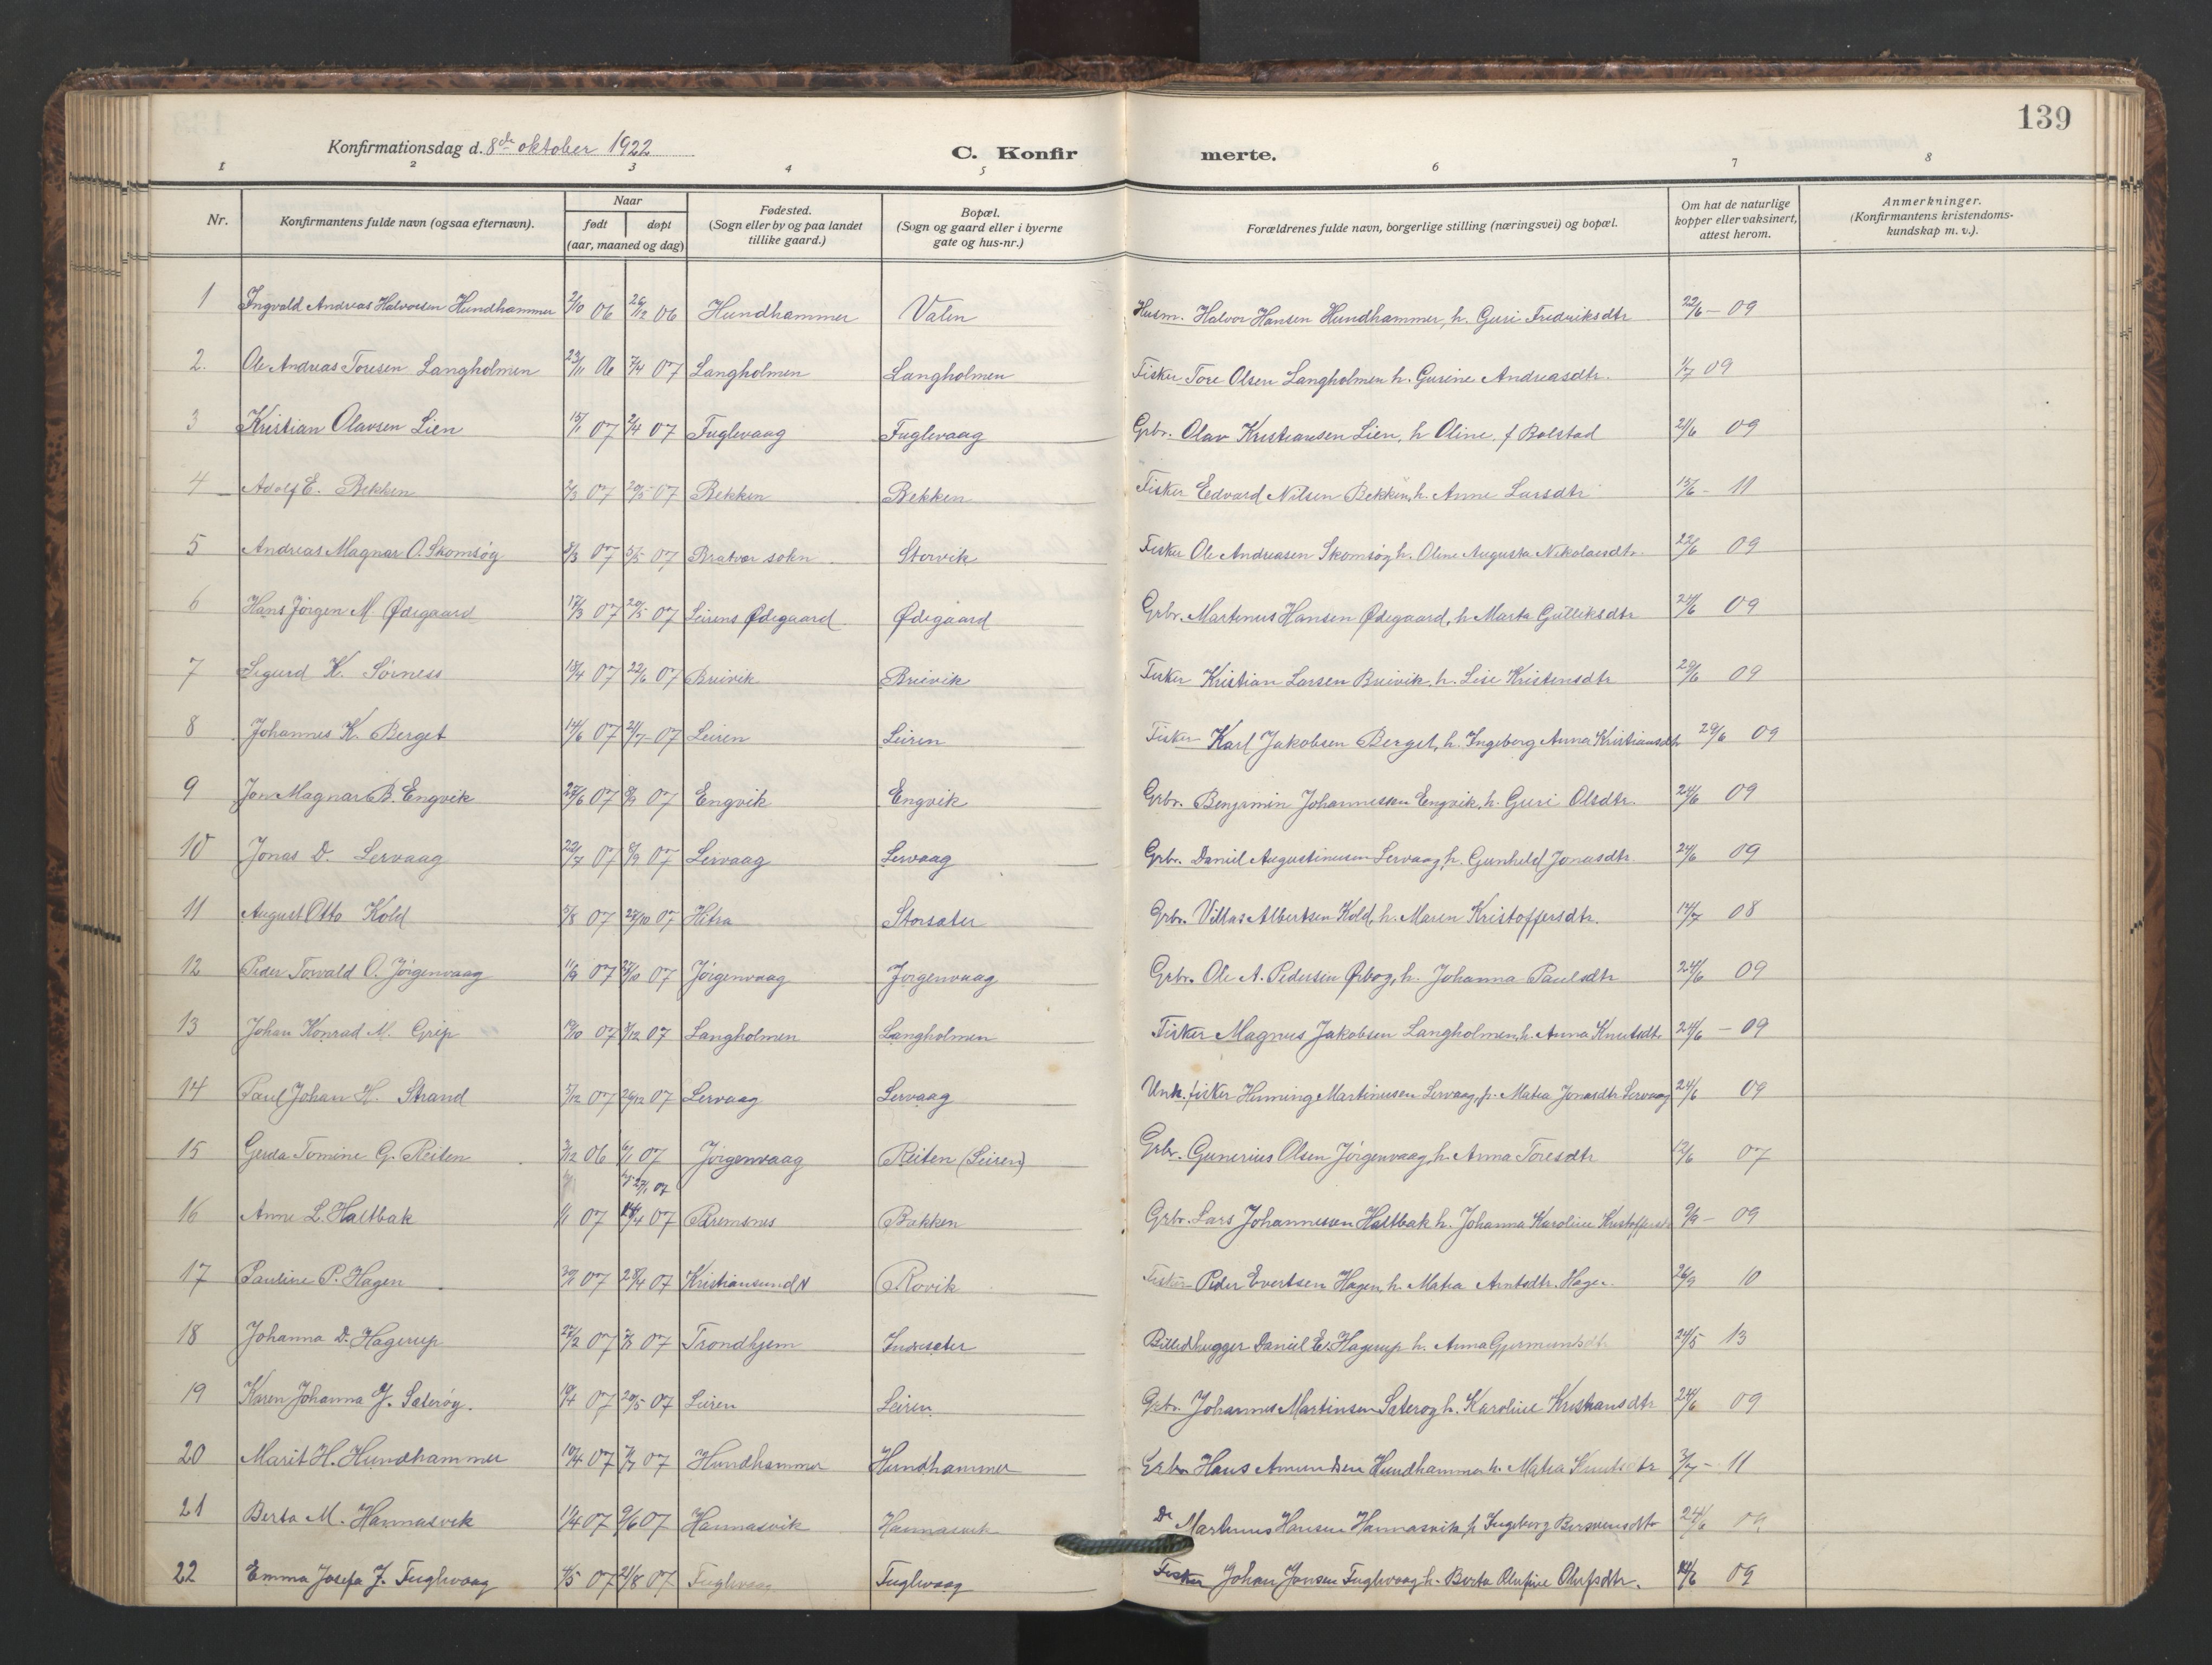 139
Konfirmationsdag d. 8de oktober 1922 C. Konfir merte.
1 2 3 4 5 6 7 8
Nr. Konfirmantens fulde navn (ogsaa efternavn). Naar født døpt (aar, maaned og dag) Fødested. (Sogn eller by og paa landet tillike gaard.) Bopæl. (Sogn og gaard eller i byerne gate og hus-nr.) Forældrenes fulde navn, borgerlige stilling (næringsvei) og bopæl. Om hat de naturlige kopper eller vaksinert, attest herom. Anmerkninger. (Konfirmantens kristendoms-kundskap m. v.).
1 Ingvald Andreas Halvorsen Hundhammer 2/10 06 26/12 06 Hundhammer Valen Husm. Halvor Hansen Hundhammer, h. Guri Fredriksdtr 22/6 - 09
2. Ole Andreas Toresen Langholmen 23/11 06 7/4 07 Langholmen Langholmen Fisker Tore Olsen Langholmen h. Gurine Andreasdtr. 1/7 09
3 Kristian Olavsen Lien 15/1 07 2/4 07 Fuglevaag Fuglevaag Grbr. Olav Kristiansen Lien, h Oline f Bolstad 21/6 09
4 Adolf E. Bekken 2/3 07 20/5 07 Bekken Bekken Fisker Edvard Nilsen Bekken, h. Anne Larsdtr 15/6 - 11
5 Andreas Magnar O. Skomsøy 8/3 07 5/5 07 Bratvær sokn Storvik Fisker Ole Andreasen Skomsøy h. Oline Augusta Nikolaisdtr. 22/6 09
6 Hans Jörgen M. Ødegaard 17/3 07 20/5 07 Leirens Ødegaard Ødegaard Grbr. Martinus Hansen Ødegaard, h Marta Gulliksdtr 24/6 09
7 Sigurd K. Sörness 18/4 07 22/6 07 Breivik Breivik Fisker Kristian Larsen Breivik, h. Lise Kristensdtr 29/6 09
8 Johannes K. Berget 14/6 07 21/7 07 Leiren Leiren Fisker Karl Jakobsen Berget, h. Ingeborg Anna Kristiansdtr 29/6 09
9 Jon Magnar B. Engvik 27/6 07 8/9 07 Engvik Engvik Grbr. Benjamin Johannessen Engvik, h. Guri Olsdtr. 24/6 09
10 Jonas D. Lervaag 22/7 07 8/9 07 Lervaag Lervaag Grbr. Daniel Augustinusen Lervaag, h. Gunhild Jonasdtr. 24/6 09
11 August Otto Kold 5/8 07 27/10 07 Hitra Storsäter Grbr. Villas Albertsen Kold, h. Maren Kristoffersdtr. 14/7 08
12 Peder Torvald O. Jörgenvaag 11/9 07 27/10 07 Jörgenvaag Jörgenvaag Grbr. Ole A. Pedersen Ørbog, h. Johanna Paulsdtr 24/6 09
13 Johan Konrad M. Grip 19/10 07 /12 07 Langholmen Langholmen Fisker Magnus Jakobsen Langholmen, h. Anna Knutsdtr. 24/6 - 09
14 Paul Johan H. Strand 5/12 07 26/12 07 Lervaag Lervaag Unk. fisker Henning Martinusen Lervaag, p. Matea Jonasdtr. Lervaag 24/6 09
15 Gerda Tomine G. Reiten 3/12 06 6/1 07 Jörgenvaag Reiten (Leiren) Grbr. Gunerius Olsen Jörgenvaag h. Anna Toresdtr 12/6 07
27/1 07
16 Anne L. Haltbak 1/1 07 /4 07 Bremsnes Bakken Grbr. Lars Johannessen Haltbak h. Johanna Karoline Kristoffersd 9/9 - 09
17 Pauline P. Hagen 30/1 07 28/4 07 Kristiansund N Rovik Fisker Peder Evertsen Hagen, h. Matea Arntsdtr. Hagen 26/9 10
18 Johanna D. Hagerup 27/2 07 07 Trondhjem Indresæter Billedhugger Daniel E. Hagerup h. Anna Gjermundsdtr. 24/5 13
19 Karen Johanna J. Saterøy. 19/4 07 20/5 07 Leiren Leiren Grbr. Johannes Martinsen Saterøy h. Karoline Kristiansdtr 24/6 09
20 Marit H. Hundhammer 10/4 07 07 Hundhammer Hundhammer Grbr Hans Amundsen Hundhammer h. Matea Knutsdtr 3/7 - 11
21 Berta M. Hannasvik 11/4 07 9/6 07 Hannasvik Hannasvik Do Martinus Hansen Hannasvik h Ingeborg 24/6 09
22 Emma Josefa J. Fuglevaag 4/5 07 21/8 07 Fuglevaag Fuglevaag Fisker Johan Jonsen Fuglevaag h. Berta Olufine Olufsdtr. 24/6 09